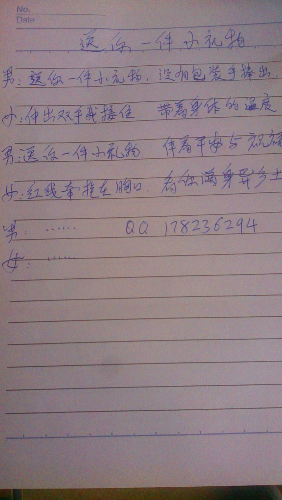 No.
Date
送你一件小礼物
男：送你一件小礼物，没有包装手捧出
女：伸出双手我接住 带着身体的温度
男：送你一件小礼物 伴着平安与祝福
女：红线牵挂在胸口，看你满身异乡土
男： …… QQ 178236294
女： ……